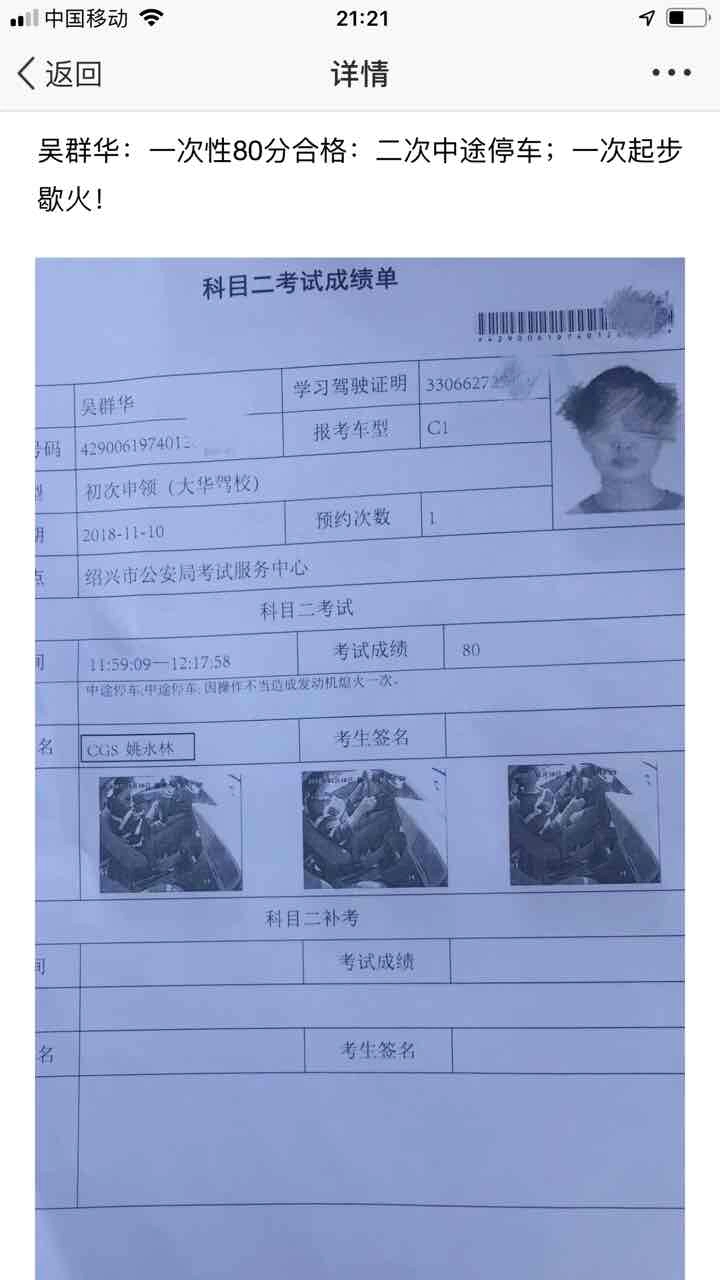 中国移动 21:21
返回 详情
吴群华：一次性80分合格：二次中途停车；一次起步
歇火！
科目二考试成绩单
吴群华 学习驾驶证明 3306627
号码 4290061974012 报考车型 C1
型 初次申领（大华驾校）
期 2018-11-10 预约次数 1
点 绍兴市公安局考试服务中心
科目二考试
间 11:59:09—12:17:58 考试成绩 80
中途停车,中途停车,因操作不当造成发动机熄火一次。
名 CGS 姚永林 考生签名
科目二补考
间 考试成绩
名 考生签名